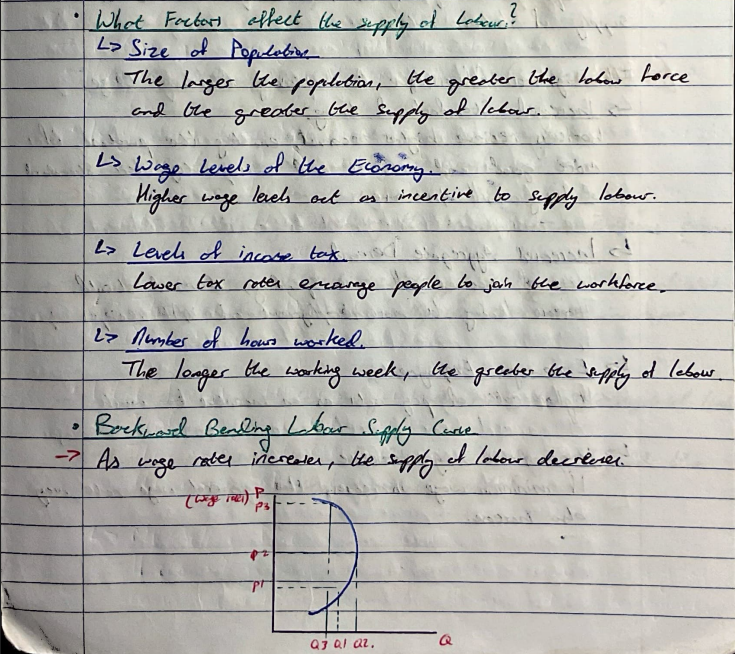 • What Factors affect the supply of Labour?
↳ Size of Population
The larger the population, the greater the labour force
and the greater the supply of labour.
↳ Wage Levels of the Economy.
Higher wage levels act as incentive to supply labour.
↳ Levels of income tax.
Lower tax rates encourage people to join the workforce.
↳ Number of hours worked.
The longer the working week, the greater the supply of labour.
• Backward Bending Labour Supply Curve
→ As wage rates increases, the supply of labour decreases.
(Wage rates) P
P3
P2
P1
Q3 Q1 Q2. Q